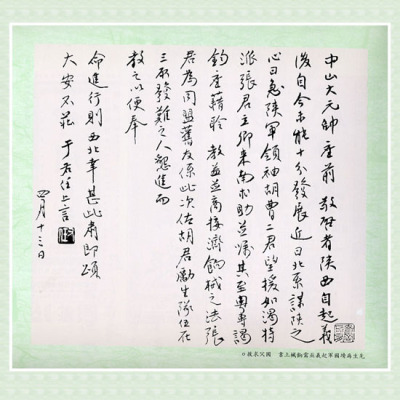 中山大元帥座前 敬啓者陝西自起義
後自今未能十分發展近日北系謀陝之
心日急陝軍領袖胡曹二君望援如渴特
派張君立卿來南求助並囑其至粵專謁
鈞座藉聆 教益並商接濟餉械之法張
君為同盟舊友係此次佐胡君勵生隊伍在
三原發難之人懇進而
教之以便奉
命進行則西北幸甚此肅即頌
大安不莊 于右任上言
四月十三日